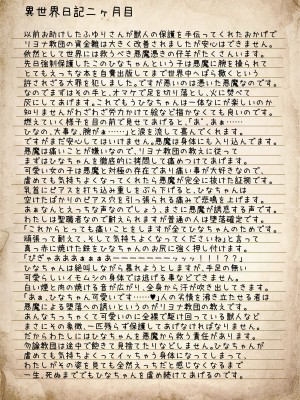 異世界日記二ヶ月目
以前お助けしたふゆりさんが獣人の保護を手伝ってくれたおかげで
リヨナ教団の資金難は大きく改善されましたが安心はできません。
依然として世界には救うべき悪魔憑きの仔羊がたくさんいます。
先日強制保護したこのひなちゃんという子は悪魔に腕を操られて
とてもえっちな本を自費出版してまで世界中へばら撒くという
許されざる罪を犯しました。ですが悪いのは憑いた悪魔なのです。
なのでまずはその手と、オマケで足を切り落とし、火に焚べて
灰にしてあげます。これでもうひなちゃんは一体なにが楽しいのか
知りませんがわざわざ労力かけて絵など描かなくても良いのです。
燃えていく様子を目の前で見せてあげると、「あ゛、あぁ……
ひなの、大事な、腕がぁ……」と涙を流して喜んでくれます。
ですがまだ安心してはいけません。悪魔は身体にも入り込んでます。
悪魔は痛いことが嫌いなので、リヨナ教団の教えに従って
まずはひなちゃんを徹底的に拷問して痛めつけてあげます。
可愛い女の子は悪魔と対極の存在であり痛い事が大好きなので、
虐めても気持ちよくなってくれたら悪魔が完全に抜けた証拠です。
乳首にピアスを打ち込み重しをぶら下げると、ひなちゃんは
空けたばかりのピアス穴を引っ張られる痛みで悲鳴を上げます。
あぁなんとえっちな声なのでしょう。まさに悪魔が誘惑する声です。
わたしは聖職者なので耐えられますが普通の人は堕落確定です。
「これからとっても痛いことをしますが全てひなちゃんのためです。
頑張って耐えて、そして気持ちよくなってくださいね」と言って
真っ赤に焼けた鉄をひなちゃんのお尻に強く押し付けます。
「ぴぎゃあああぁぁぁあーーーーーーっっっ！！！？？」
ひなちゃんは絶叫しながら暴れようとしますが、手足の無い
可愛らしいイモムシの身体では逃げる事などできません。
白い煙と肉の焼ける音が広がり、全身から汗が吹き出してきます。
「あぁ、ひなちゃん可愛いです……♥」人の劣情を沸き立たせる者は
悪魔による堕落への誘いというのがリヨナ教団の教えです。
あんなちっちゃくて可愛いのに全裸で駆け回っている獣人など
まさにその象徴、一匹残らず保護してあげなければなりません。
だからわたしにはひなちゃんを悪魔から救う責任があります。
勿論教団は途中で飽きて見捨てたりなどしません。ひなちゃんが
虐めても気持ちよくってイッちゃう身体になってしまって、
わたしがその姿を見ても全然えっちだと感じなくなるまで
一生、死ぬまででもひなちゃんを虐め続けてあげるのです。